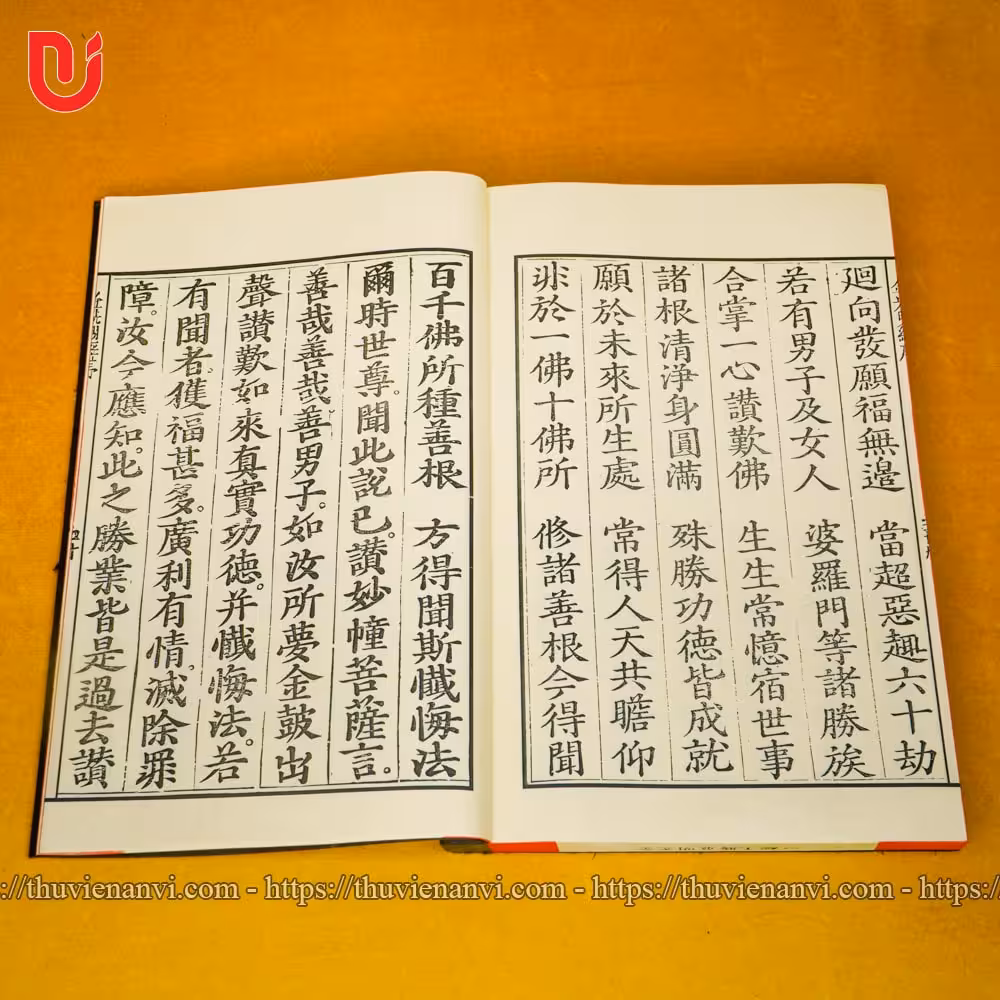 廻向發願福無邊 當超惡趣六十劫
若有男子及女人 婆羅門等諸勝族
合掌一心讚歎佛 生生常憶宿世事
諸根清淨身圓滿 殊勝功德皆成就
願於未來所生處 常得人天共瞻仰
非於一佛十佛所 修諸善根今得聞
百千佛所種善根 方得聞斯懺悔法
爾時世尊。聞此說已。讚妙幢菩薩言。
善哉善哉善男子。如汝所夢金鼓出
聲讚歎如來真實功德。并懺悔法。若
有聞者。獲福甚多。廣利有情。滅除罪
障。汝今應知。此之勝業皆是過去讚
://thuvienanvi.com - https://thuvienanvi.com - https://thuvienanvi.com - https:/